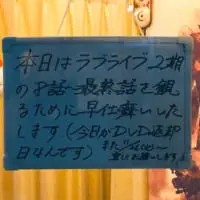 本日はラブライブ2期
の8話〜最終話を観
るために早仕舞いいた
します(今日がDVD返却
日なんです)
宜しくお願いします